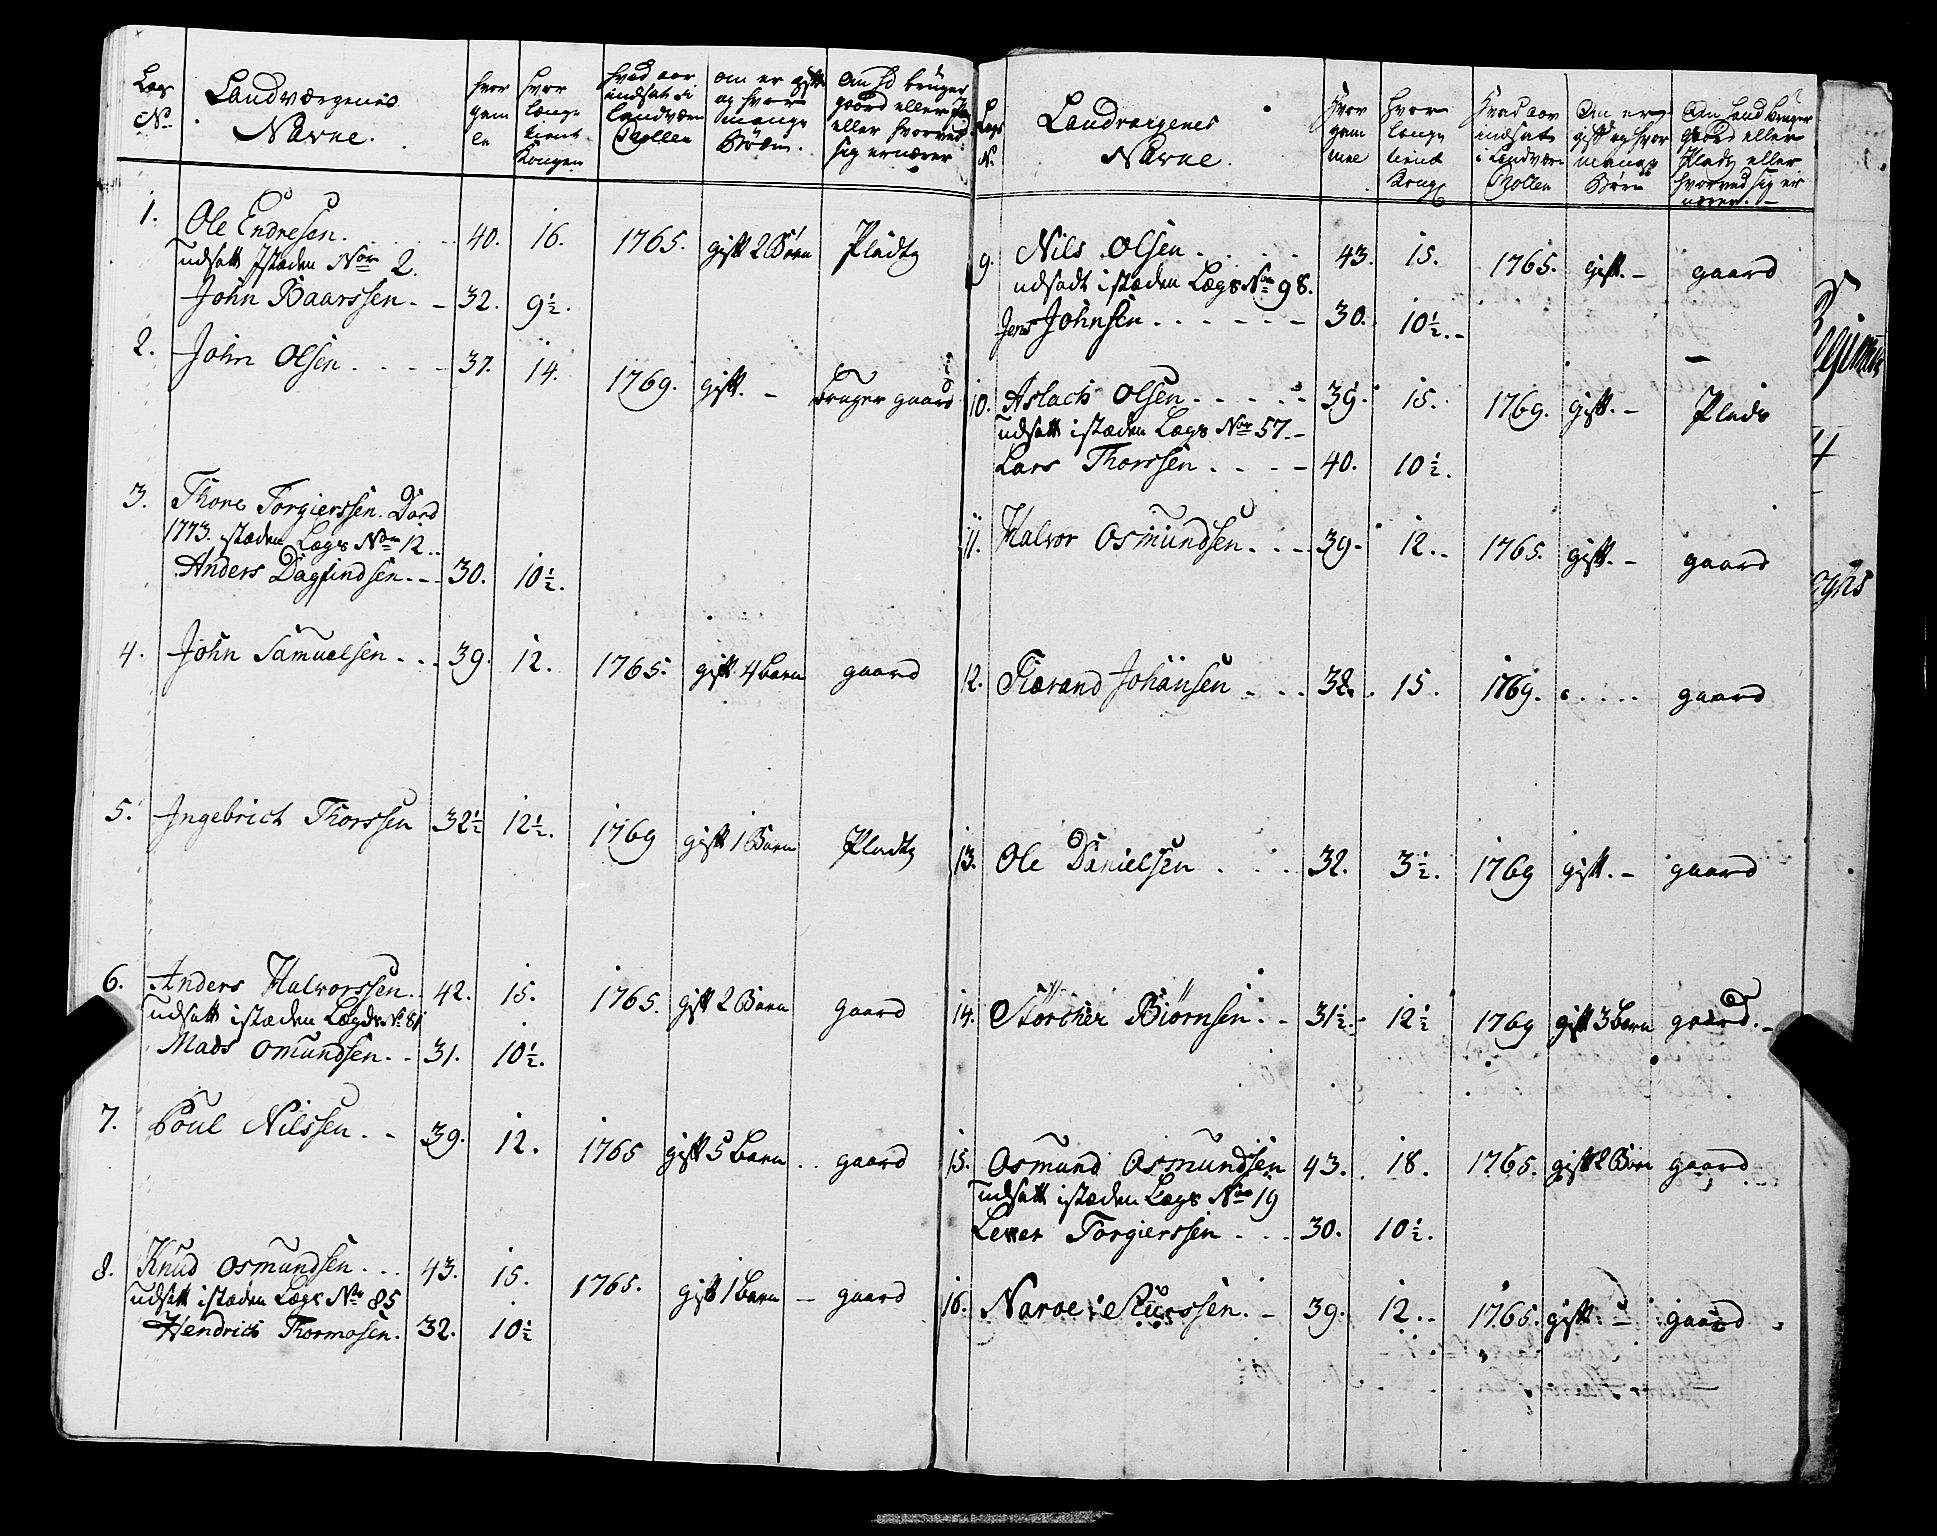 Læg No
Landværgenes Navne.
hvor gamle
hvor længe tient Kongen
hvad aar indsat i Landværn Rollen
om er gift og hvor mange Børn.
eller hvorved sig ernærer
1. Ole Endresen. 40. 16. 1765. gift 2 Børn Pladtz
udsatt istæden Nor 2.
John Baarssen. 32. 9½.
2. John Olsen 37. 14. 1769. gift. - bruger gaard
3. Thore Torgierssen. Død
1773. istæden Lægs Nom 12.
Anders Dagfindsen. 30. 10½.
4. John Samuelsen 39. 12. 1765. gift 4 barn gaard
5. Ingebrict Thorssen 32½ 12½. 1769 gift 1 Barn Pladtz
6. Anders Halvorssen. 42. 15. 1765. gift 2 Barn gaard
udsatt istæden Lægds No 81
Mads Omundsen. 31. 10½.
7. Poul Nilssen 39. 12. 1765 gift 5 barn gaard
8. Knud Osmundsen 43. 15. 1765. gift 1 barn - gaard
udsatt istæden Lægs No 85
Hendrich Thormosen. 32. 10½
Lægs N.
Landværgenes Navne.
Hvor gammel
hvor længe tient Kong
Hvad aar indsat i Landværn Rollen
Om er gift og hvor mange Børn
Om hand bruger gaard eller Pladz eller hvorved sig ernærer. -
9. Nils Olsen 43. 15. 1765. gift. - gaard
udsadt istæden Lægs No 98.
Jens Johnsen 30. 10½. -
10. Aslach Olsen 39. 15. 1769. gift. - Plads
udsatt istæden Lægs Nor 57. -
Lars Thorssen 40. 10½.
11. Halvor Osmundsen 39 - 12. - 1765. gift. - gaard
12. Tiærand Johansen 32. 15. 1769. gaard
13. Ole Danielsen 32. 3½. 1769 gift. - gaard
14. Størcher Biørnsen 31½. 12½ 1769 gift 3 barn gaard. -
15. Osmund Osmundsen 43. 18. 1765. gift 2 Børn gaard
udsatt istæden Lægs No 19
Torgierssen 30. 10½.
16. Naroe 39. 12. - 1765. gift. - gaard